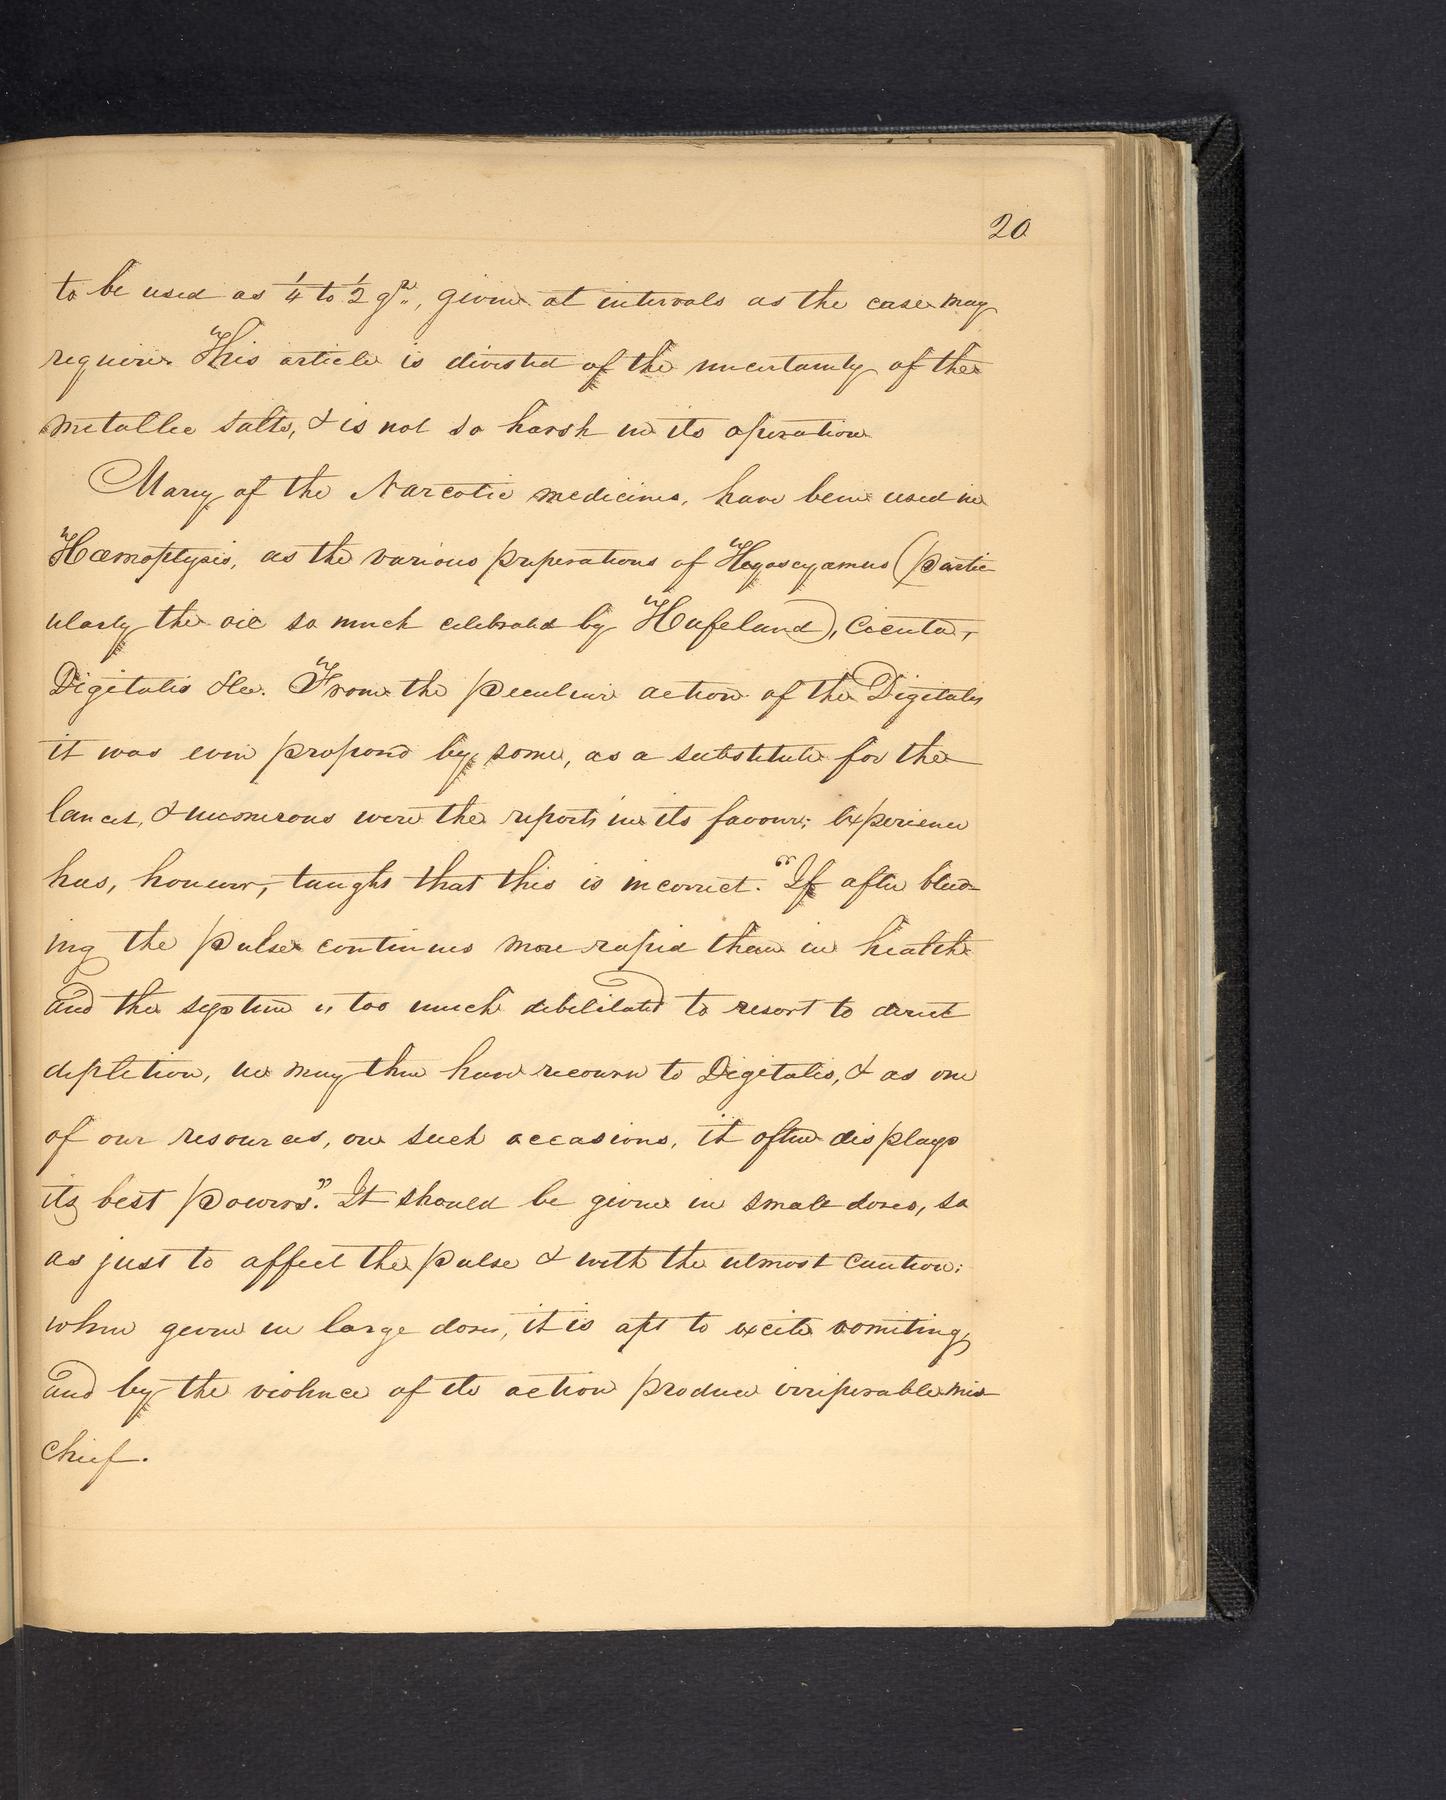 20
to be used as ¼ to ½ gr., given at intervals as the case may
require. This article is divested of the uncertainty of the
metallic salts, & is not so harsh in its operation
Many of the Narcotic medicines, have been used in
Hæmoptysis, as the various preperations of Hyoscyamus (partic
ularly the oil so much celebrated by Hufeland), Cicuta,
Digitalis &c. From the peculiar action of the Digitalis
it was even propos'd by some, as a substitute for the
lancet, & numerous were the reports in its favour; experience
has, however, taught that this is incorrect. "If after bleed-
ing the pulse continues more rapid than in health
and the system is too much debilitated to resort to direct
depletion, we may then have recourse to Digitalis, & as one
of our resources, on such occasions, it often displays
its best powers". It should be given in small doses, so
as just to affect the pulse & with the utmost caution;
when given in large doses, it is apt to excite vomiting,
and by the violence of its action produce irreperable mis
chief.